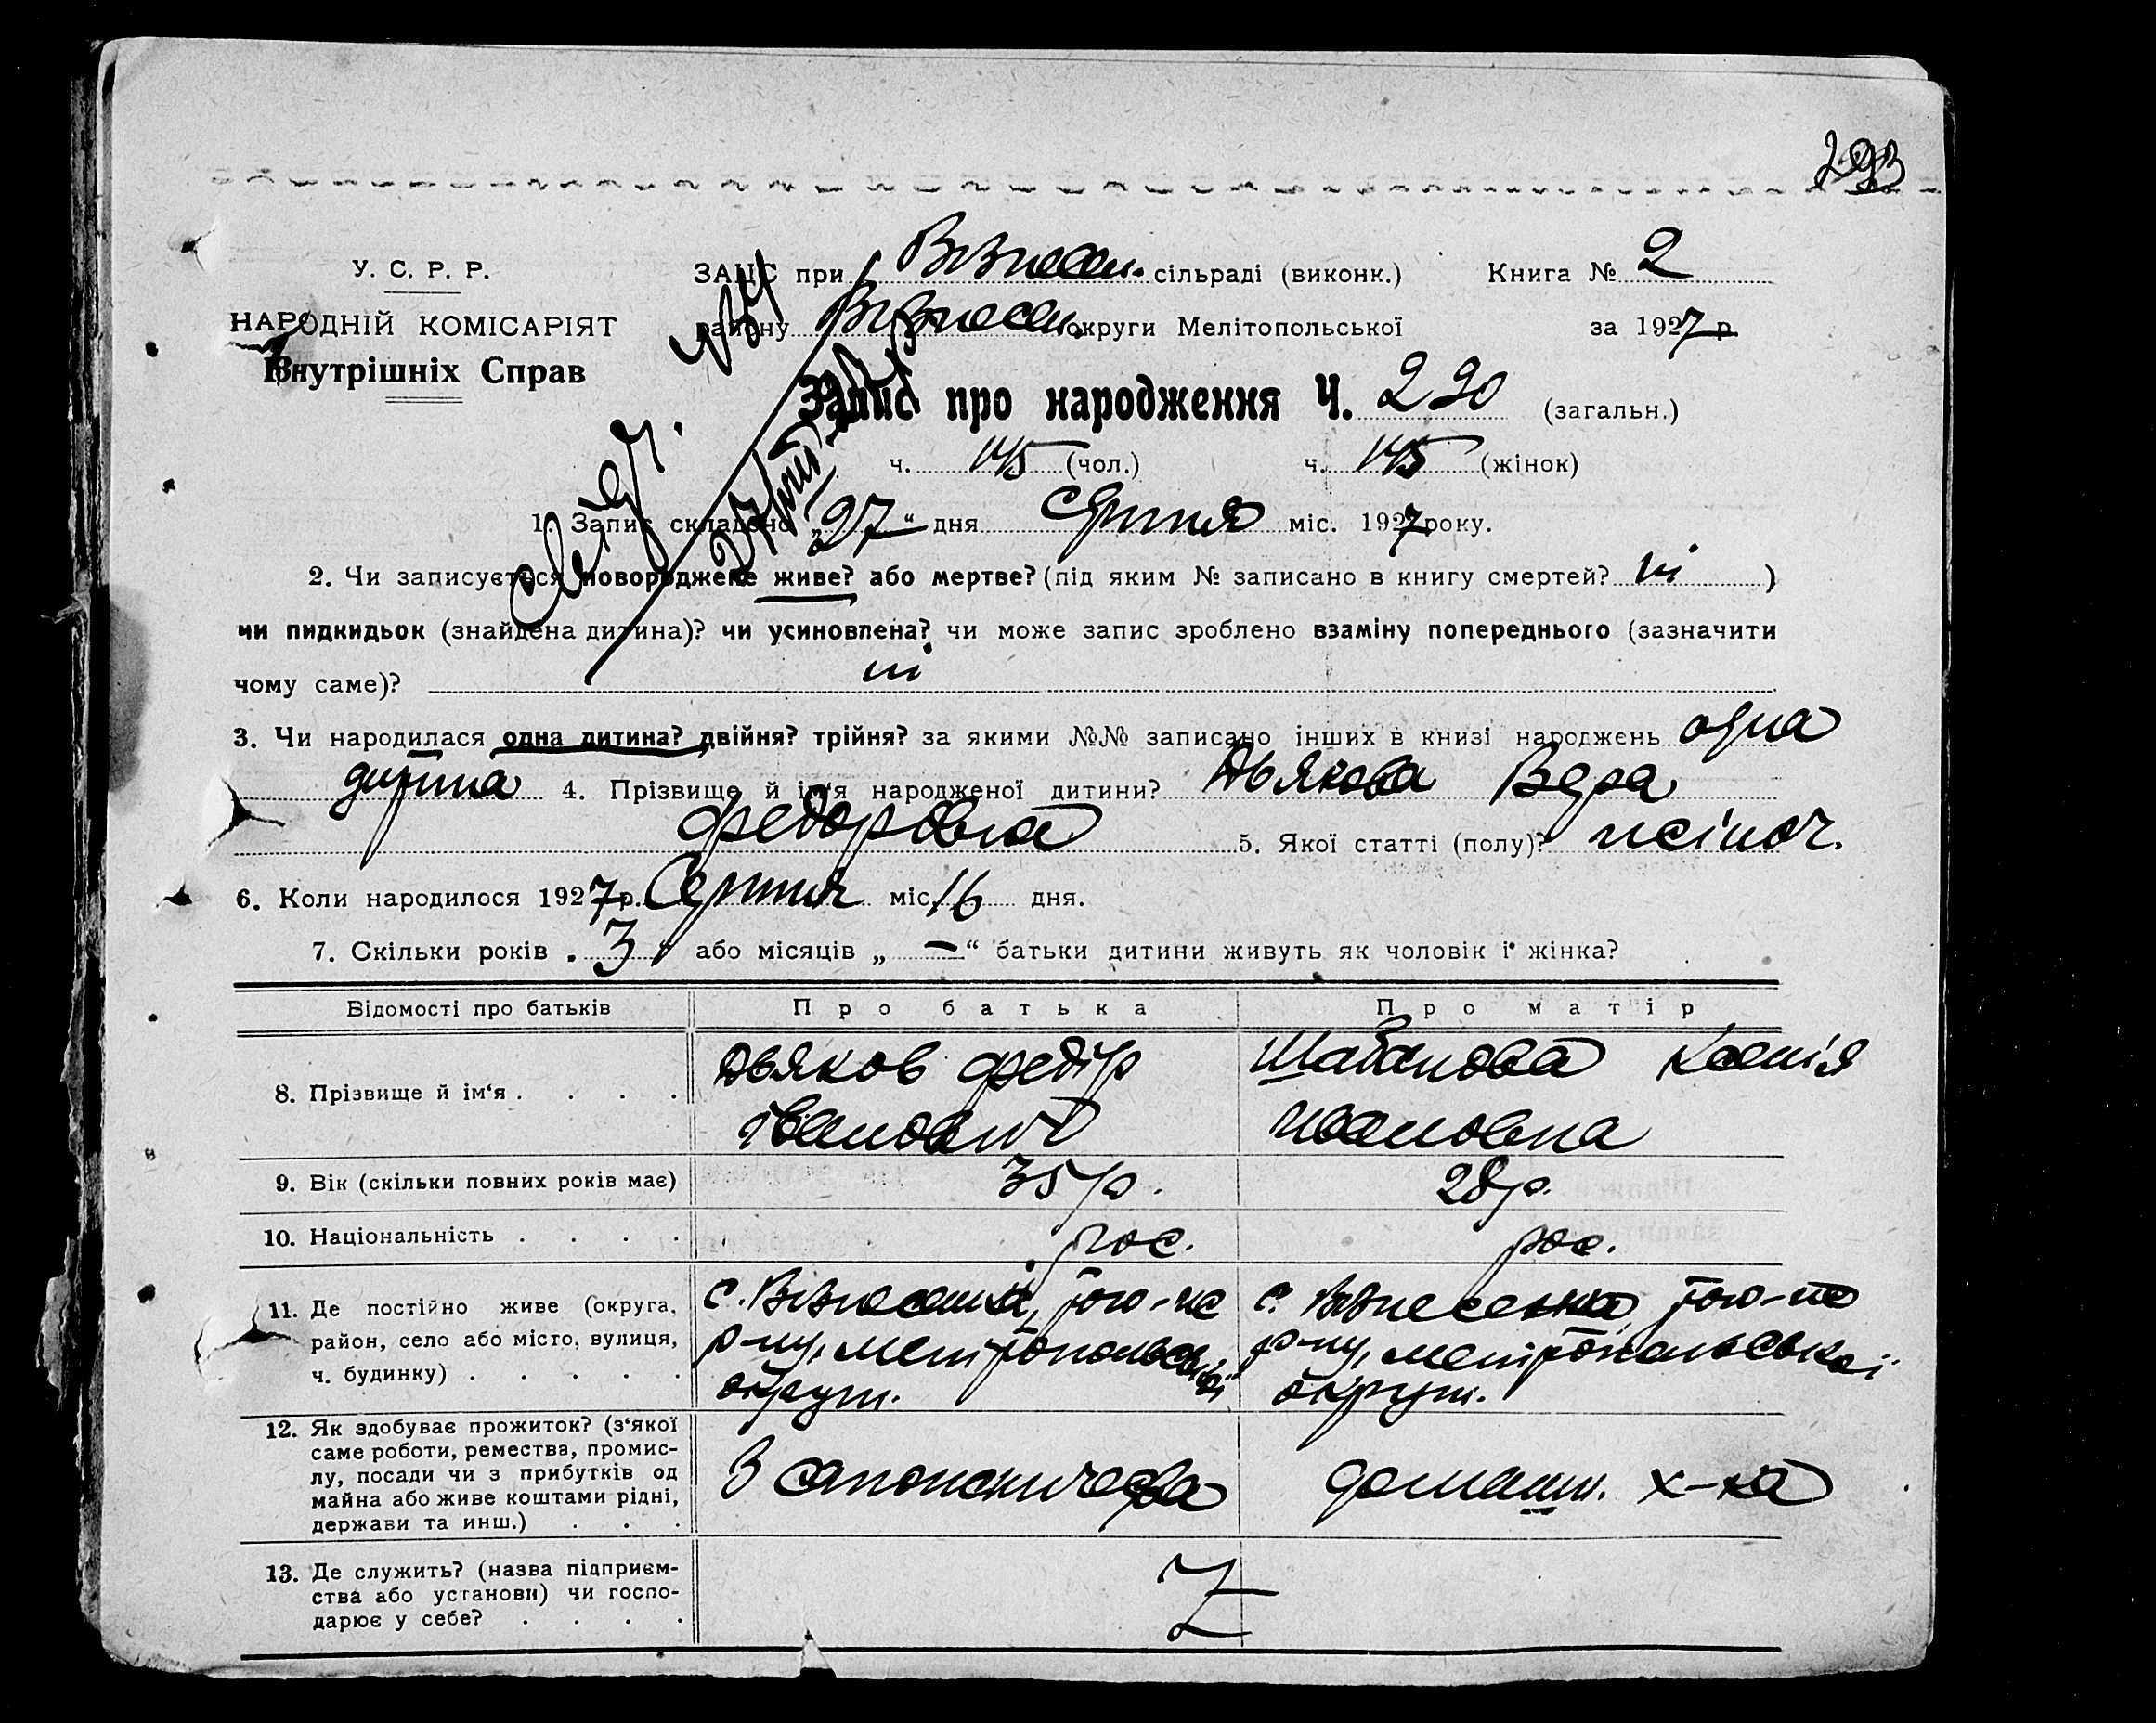 293
У. С. Р. Р.
НАРОДНІЙ КОМІСАРІЯТ
Внутрішніх Справ
ЗАЦС при Вознесен. сільраді (виконк.) Книга № 2
району Вознесен. округи Мелітопольської за 1927 р.
Запис про народження Ч. 290 (загальн.)
ч. 145 (чол.) ч. 145 (жінок)
1. Запис складено „27“ дня Серпня міс. 1927 року.
2. Чи записується новороджене живе? або мертве? (під яким № записано в книгу смертей? ні )
чи пидкидьок (знайдена дитина)? чи усиновлена? чи може запис зроблено взаміну попереднього (зазначити
чому саме)? ні
3. Чи народилася одна дитина? двійня? трійня? за якими №№ записано інших в книзі народжень одна
дитина 4. Прізвище й ім‘я народженої дитини? Дьякова Вера
Федоровна 5. Якої статті (полу)? жіноч.
6. Коли народилося 1927 р. Серпня міс. 16 дня.
7. Скільки років „3“ або місяців „—“ батьки дитини живуть як чоловік і жінка?
Відомості про батьків Про батька Про матір
8. Прізвище й ім‘я . . . . Дьяков Федір Іванович Шабанова Ксенія Ивановна
9. Вік (скільки повних років має) 35 р. 28 р.
10. Національність . . . . рос. рос.
11. Де постійно живе (округа, с. Вознесенка, того-же с. Вознесенка, того-же
район, село або місто, вулиця, р-ну, Мелітопольської р-ну, Мелітопольської
ч. будинку) . . . . . округи. округи.
12. Як здобуває прожиток? (з‘якої
саме роботи, ремества, промис-
лу, посади чи з прибутків од З домашн. х-ва
майна або живе коштами рідні,
держави та инш.) . . .
13. Де служить? (назва підприєм-
ства або установи) чи госпо-
дарює у себе? . . . .